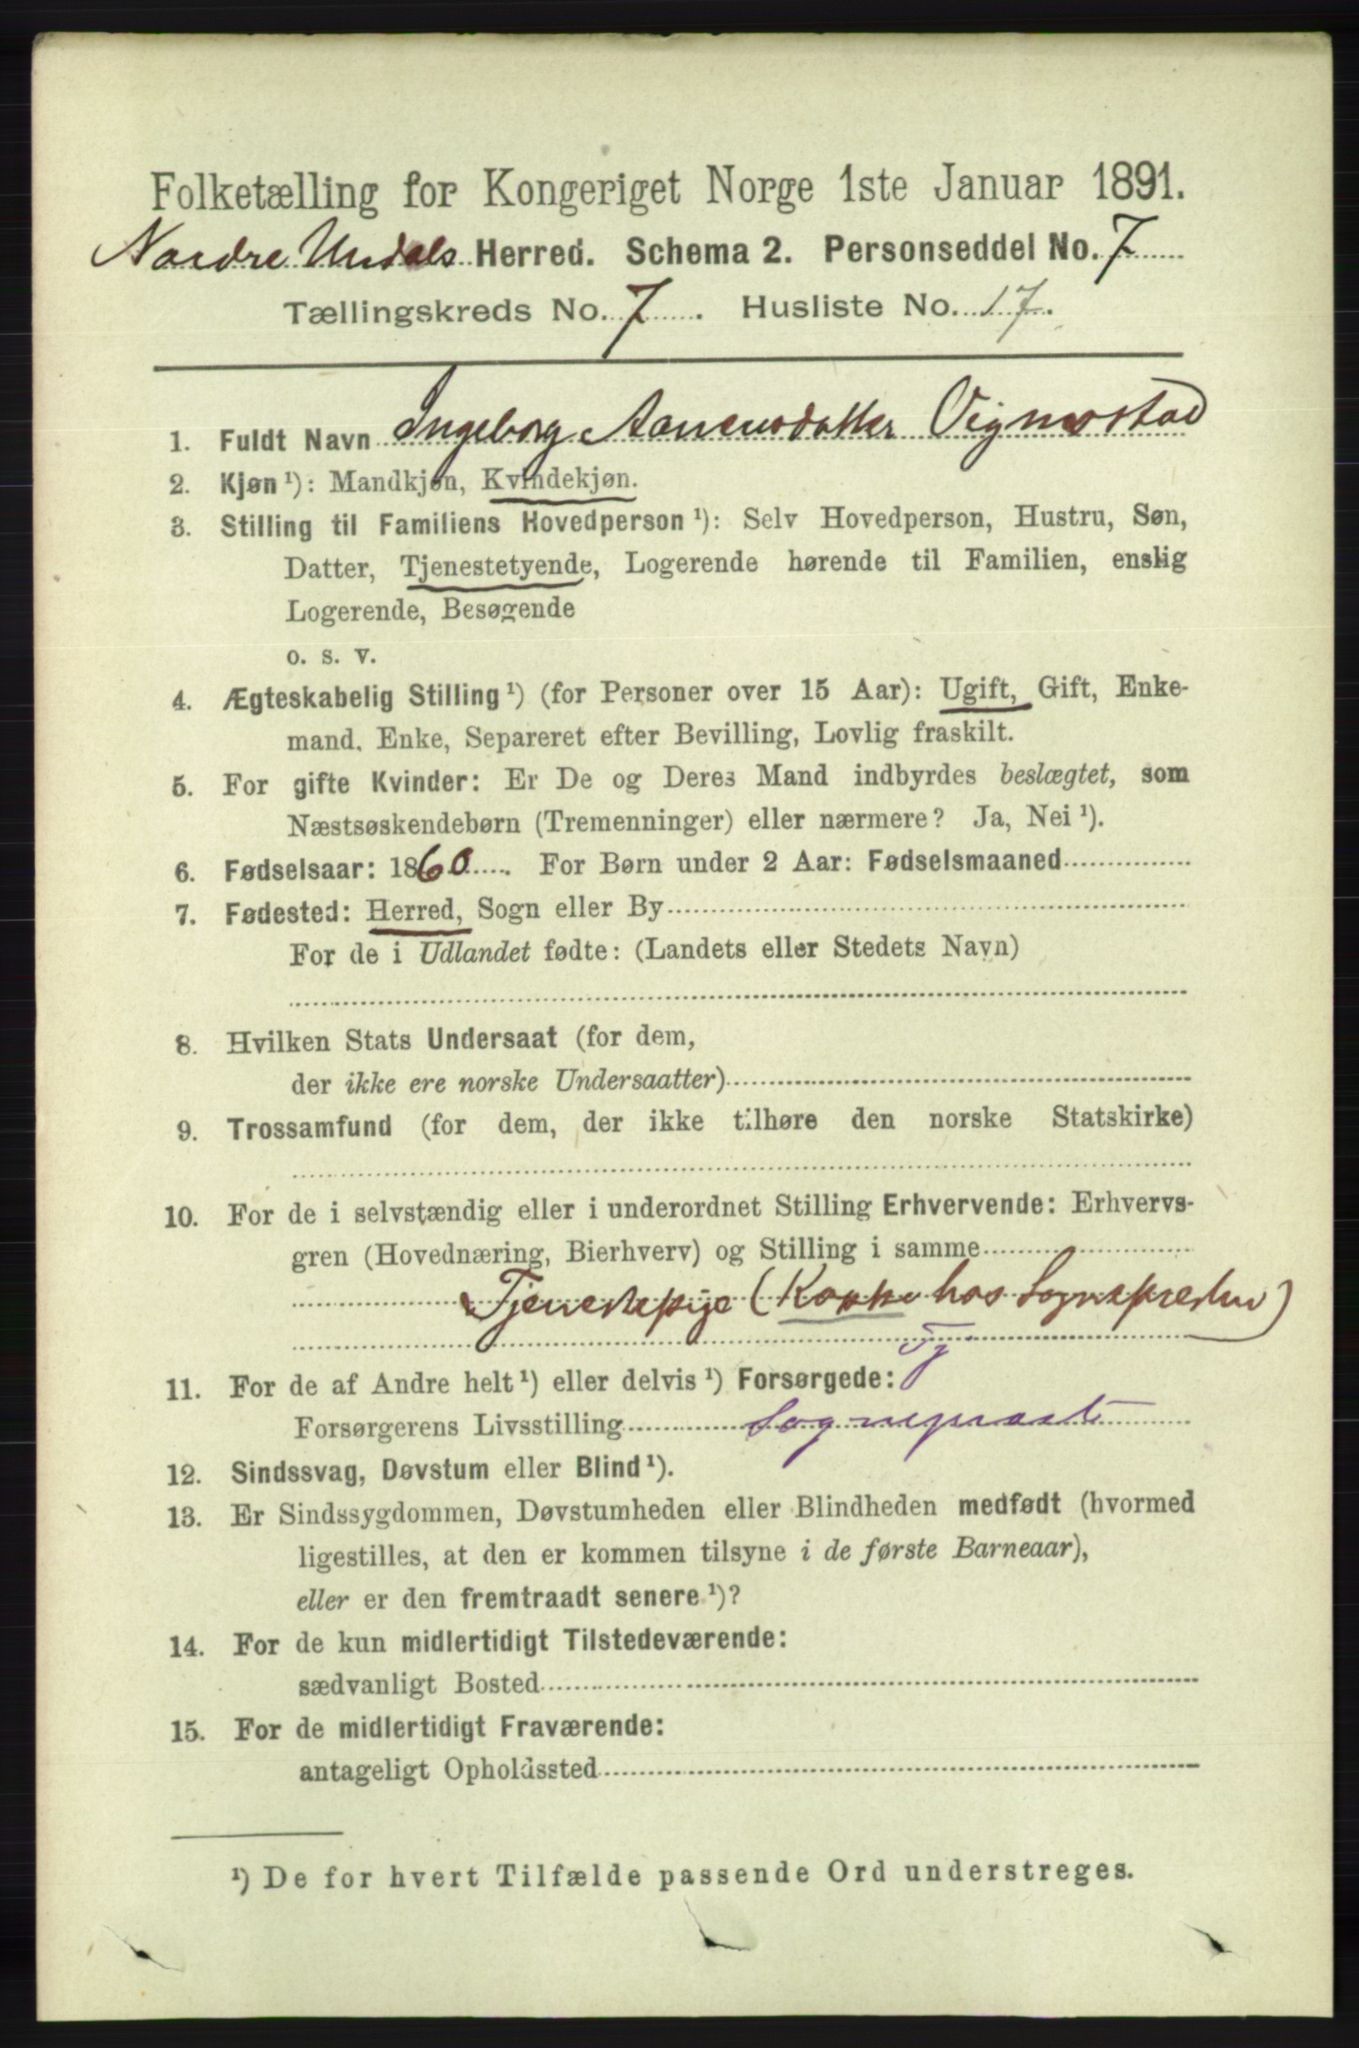 Folketælling for Kongeriget Norge 1ste Januar 1891.
Nordre Undals Herred. Schema 2. Personseddel No. 7
Tællingskreds No. 7. Husliste No. 17.
1. Fuldt Navn Ingeborg Aanensdatter Vigmostad
2. Kjøn ¹): Mandkjøn, Kvindekjøn.
3. Stilling til Familiens Hovedperson ¹): Selv Hovedperson, Hustru, Søn,
Datter, Tjenestetyende, Logerende hørende til Familien, enslig
Logerende, Besøgende
o. s. v.
4. Ægteskabelig Stilling ¹) (for Personer over 15 Aar): Ugift, Gift, Enke-
mand, Enke, Separeret efter Bevilling, Lovlig fraskilt.
5. For gifte Kvinder: Er De og Deres Mand indbyrdes beslægtet, som
Næstsøskendebørn (Tremenninger) eller nærmere? Ja, Nei ¹).
6. Fødselsaar: 1860. For Børn under 2 Aar: Fødselsmaaned
7. Fødested: Herred, Sogn eller By
For de i Udlandet fødte: (Landets eller Stedets Navn)
8. Hvilken Stats Undersaat (for dem,
der ikke ere norske Undersaatter)
9. Trossamfund (for dem, der ikke tilhøre den norske Statskirke)
10. For de i selvstændig eller i underordnet Stilling Erhvervende: Erhvervs-
gren (Hovednæring, Bierhverv) og Stilling i samme
Tjenestepige (Kokke hos Sognepresten)
Tj
11. For de af Andre helt ¹) eller delvis ¹) Forsørgede:
Forsørgerens Livsstilling Sogneprest
12. Sindssvag, Døvstum eller Blind ¹).
13. Er Sindssygdommen, Døvstumheden eller Blindheden medfødt (hvormed
ligestilles, at den er kommen tilsyne i de første Barneaar),
eller er den fremtraadt senere ¹)?
14. For de kun midlertidigt Tilstedeværende:
sædvanligt Bosted
15. For de midlertidigt Fraværende:
antageligt Opholdssted
¹) De for hvert Tilfælde passende Ord understreges.